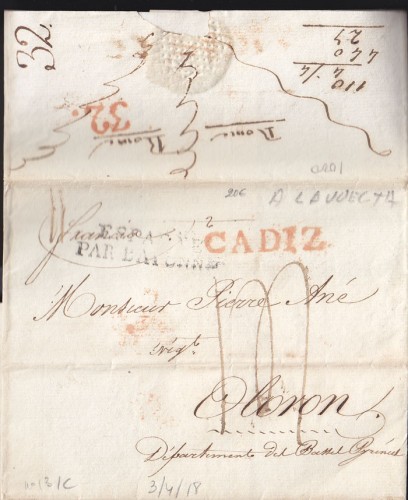 32.
110
4/4
4 40
27
32.
Rome
Rome
CADI
20€
A LA VUELTA
2
ESPAGNE
PAR BAYONNE
CADIZ
Monsieur Pierre Ané
Négt.
Oleron
Département del Basses Pyrénées
3/4/18